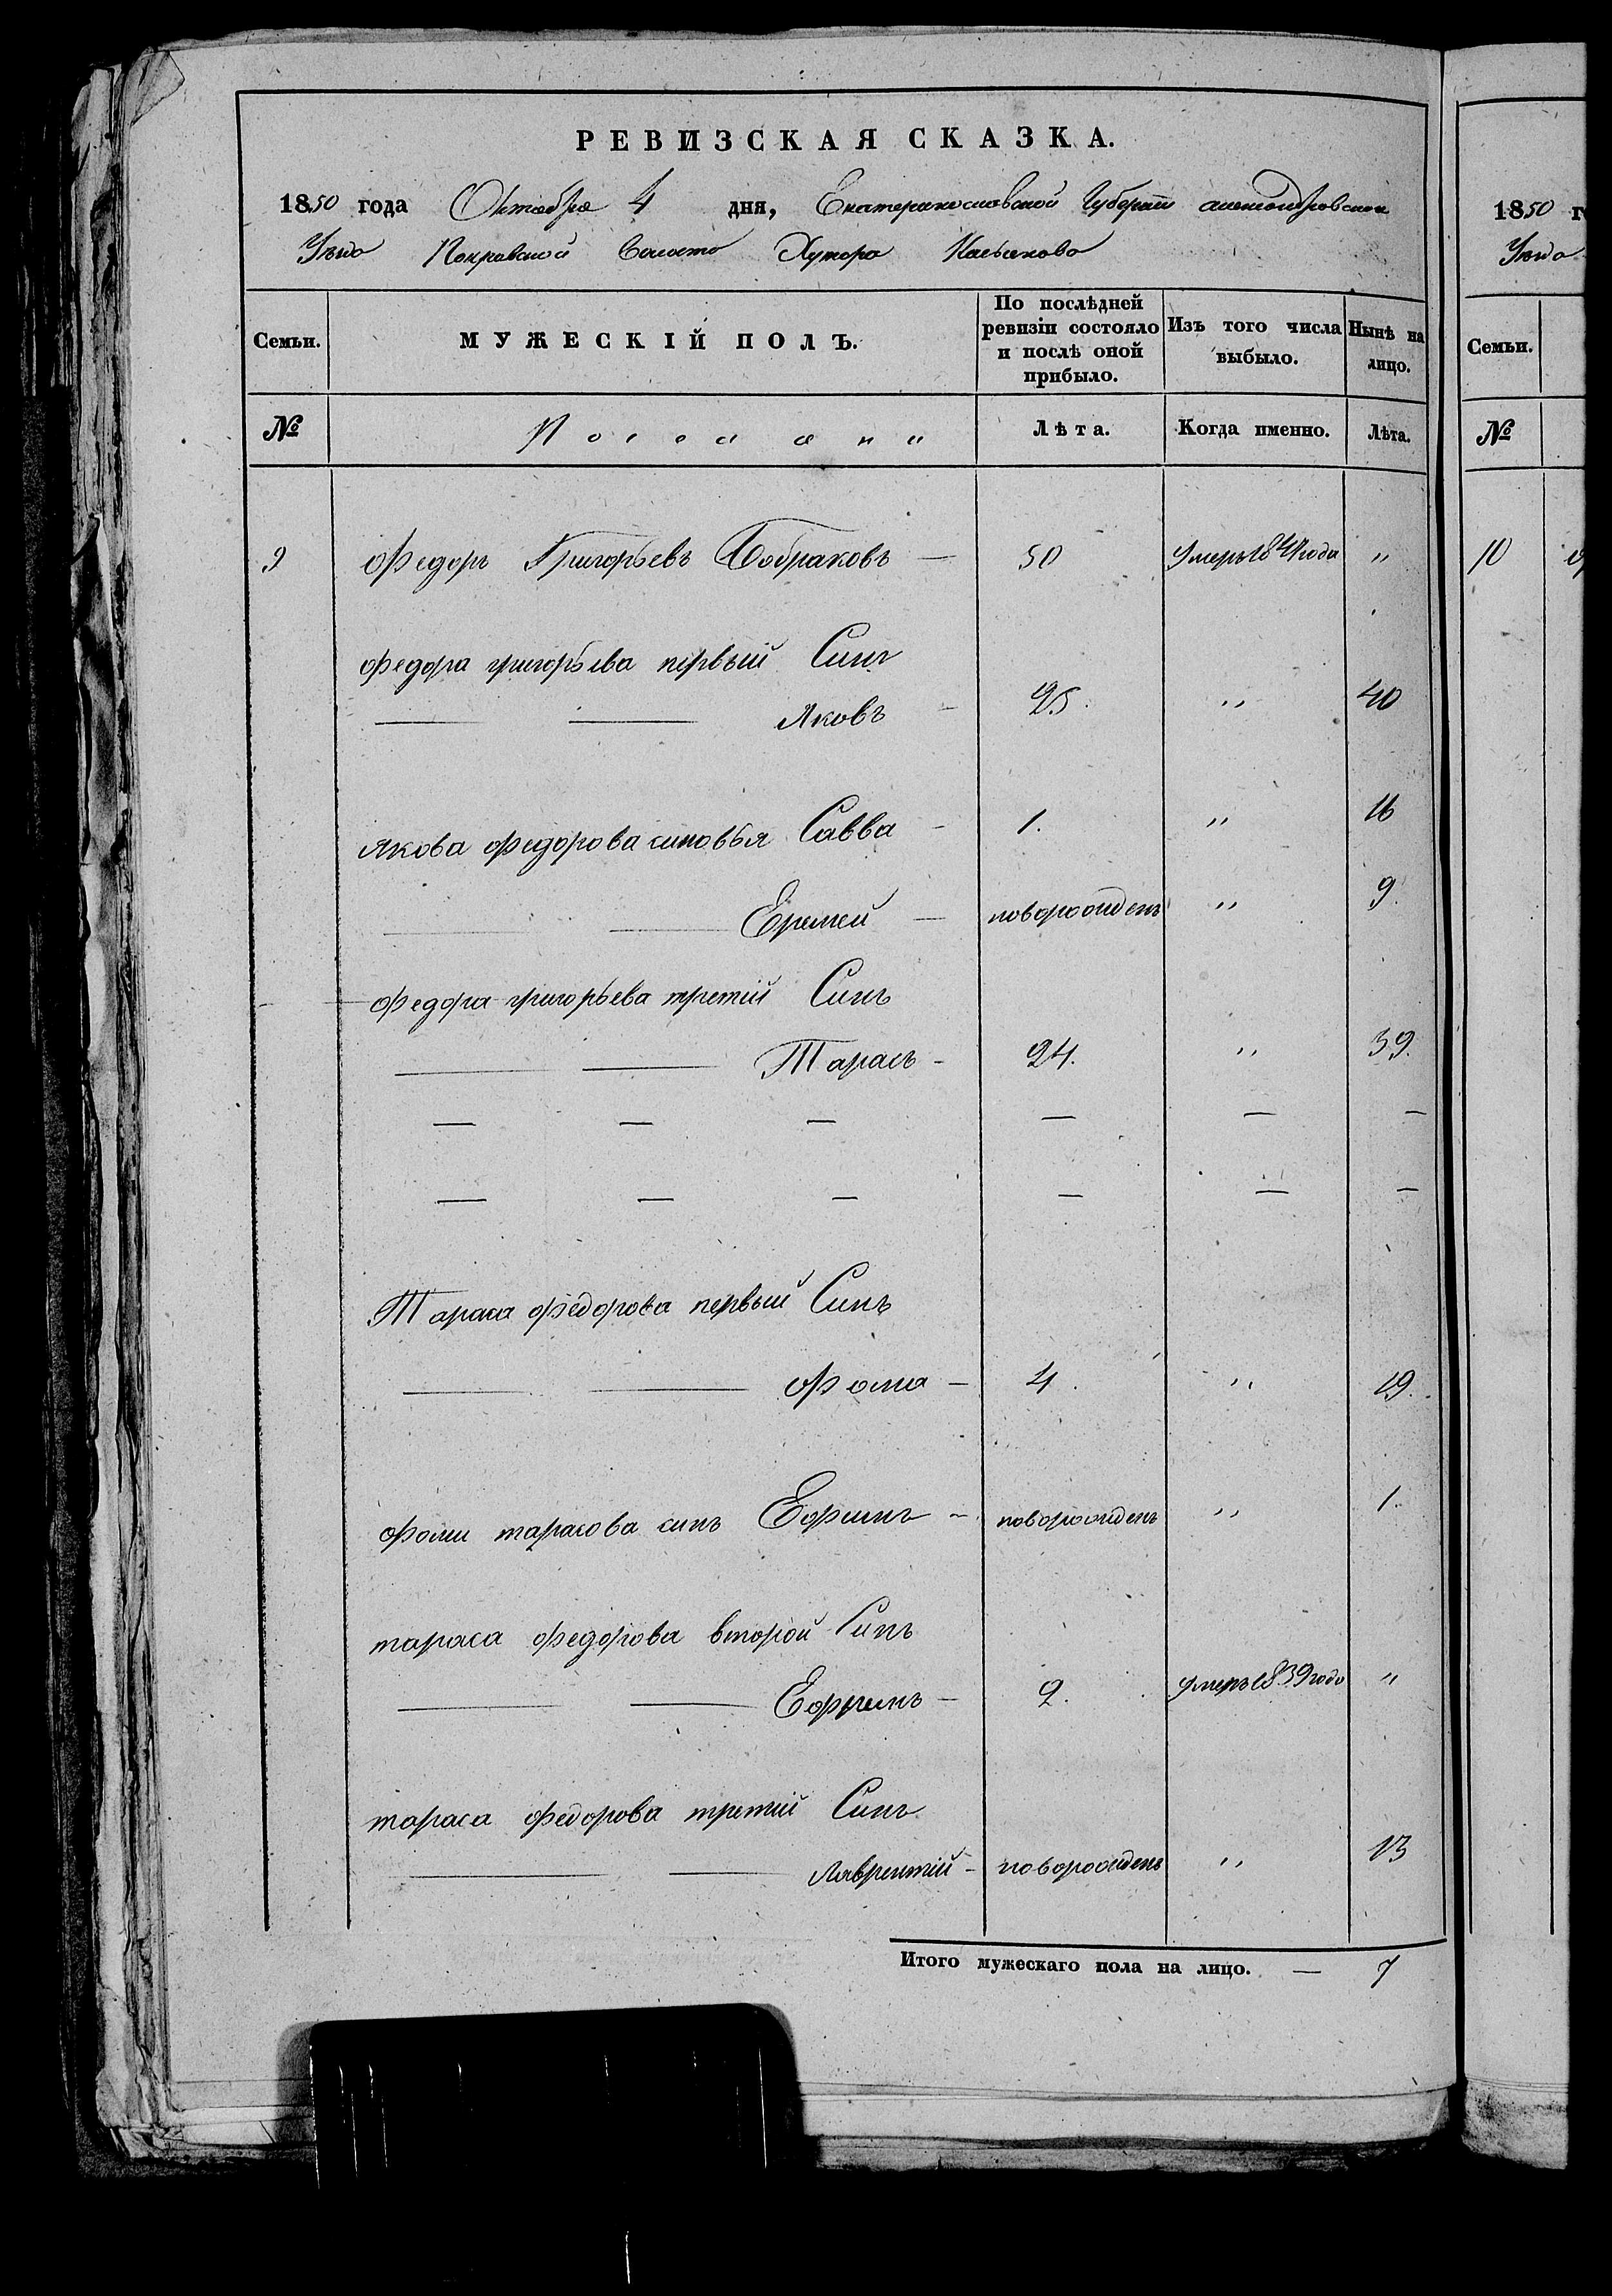 РЕВИЗСКАЯ СКАЗКА.
1850 года Октября 4 дня, Екатеринославской Губернии александровскаго
Уезда Покровской Волости Хутора
Семьи. МУЖЕСКІЙ ПОЛЪ. По послѣдней ревизіи состояло и послѣ оной прибыло. Изъ того числа выбыло. Нынѣ на лицо.
№ Лѣта. Когда именно. Лѣта.
9 Федоръ Григорьевъ Бобраковъ — 50 Умеръ 1847 года "
Федора григорьева первый Синъ
Яковъ - 25. " 40
Якова федорова синовья Савва - 1. " 16
Еремей — новорожденъ " 9.
Федора григорьева третій Синъ
Тарасъ - 24. " 39.
— — — — — —
— — — — — —
Тараса федорова первый Синъ
Фома - 4. " 19.
Фоми тарасова синъ Ефимъ - новорожденъ " 1.
тараса федорова второй Синъ
Ефримъ - 2. умеръ 1839 года "
тараса федорова третий Синъ
Лаврентій - новорожденъ " 13
Итого мужескаго пола на лицо. — 7
1850 г
Уезда
Семьи.
№
10